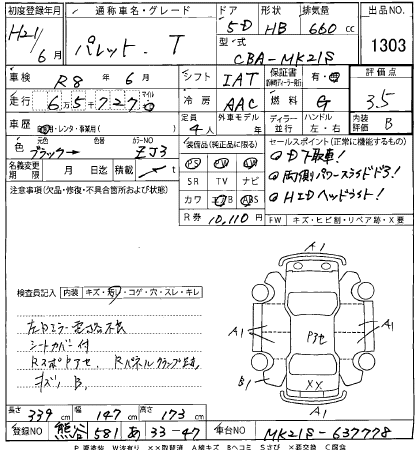 初度登録年月 通称車名・グレード ドア 形状 排気量 出品NO.
H21/6月 パレット. T 5D HB 660cc 1303
型式 CBA-MK21S
車検 R8年6月 シフト IAT 保証書 有・無 評価点 3.5
走行 6万5千727 マイル 冷房 AAC 燃料 G
定員 4人 外車モデル 年 ディーラー 並行 ハンドル 左・右 内装評価 B
車歴 自家用・レンタ・事業用( )
色 元色 ブラック→ 色替 カラーNO ZJ3
装備品(純正品に限る) セールスポイント(正常に機能するもの)
PS PW AW
SR TV ナビ
カワ エアB ABS
①D下取車!
②両側パワースライドドア!
③HIDヘッドライト!
名義変更期限 月 日迄 積載 t
R券 10,110円 FW キズ・ヒビ割・リペア跡・X要
注意事項(欠品・修復・不具合箇所および状態)
検査員記入 内装 キズ・汚レ・コゲ・穴・スレ・キレ
左Dミラー電格不良
シートカバー付
RスポPアセ.
キズ,B.
A1
A1 A1
A1 Pアセ A1
B1 XX
A1
長さ 339cm 幅 147cm 高さ 173cm
登録NO 熊谷 581 あ 33-47 車台NO MK21S-637778
P要塗装 W波有り XX取替済 A線キズ Bヘコミ Sさび X要交換 C腐食